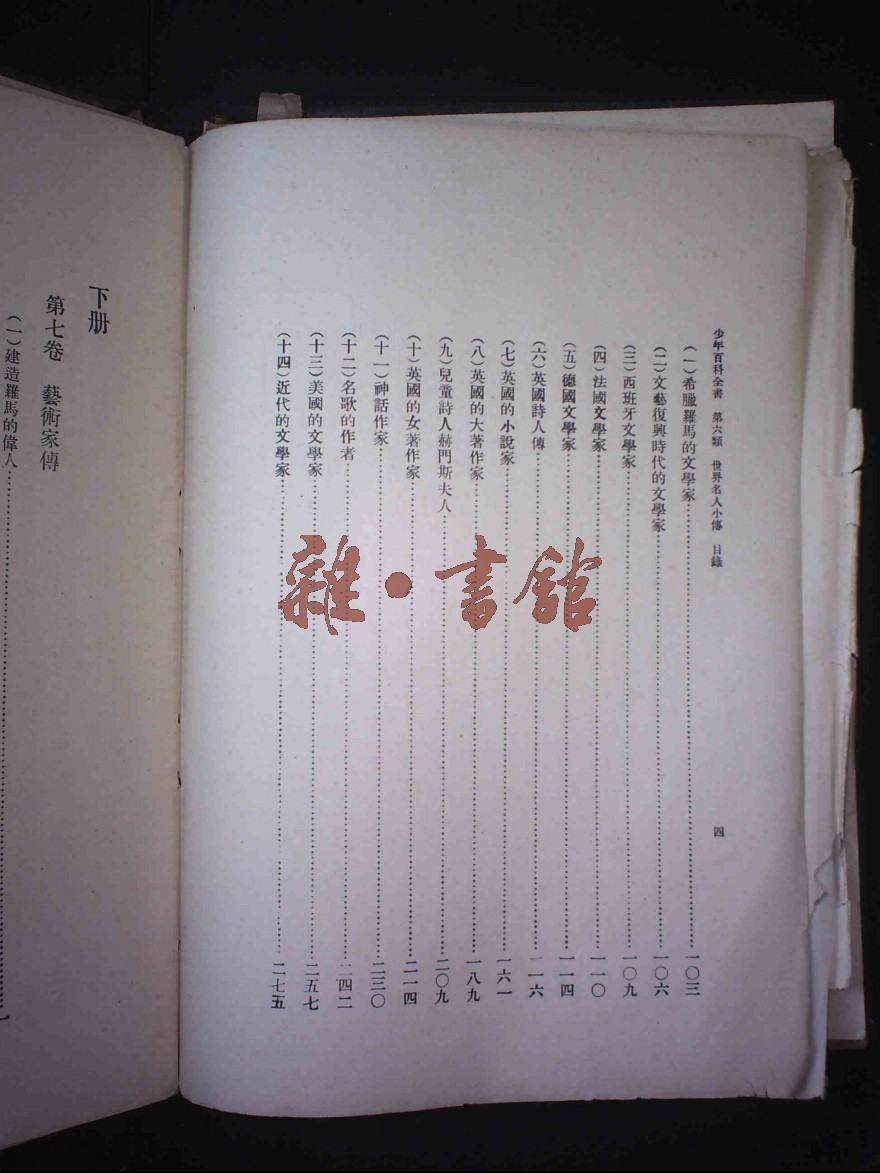 少年百科全書　第六類　世界名人小傳　目錄　四
(一)希臘羅馬的文學家……一〇三
(二)文藝復興時代的文學家……一〇六
(三)西班牙文學家……一〇九
(四)法國文學家……一一〇
(五)德國文學家……一一四
(六)英國詩人傳……一一六
(七)英國的小說家……一六一
(八)英國的大著作家……一八九
(九)兒童詩人赫門斯夫人……二〇九
(十)英國的女著作家……二一四
(十一)神話作家……二三〇
(十二)名歌的作者……二四二
(十三)美國的文學家……二五七
(十四)近代的文學家……二七五
下册
第七卷　藝術家傳
(一)建造羅馬的偉人……一
雜·書館